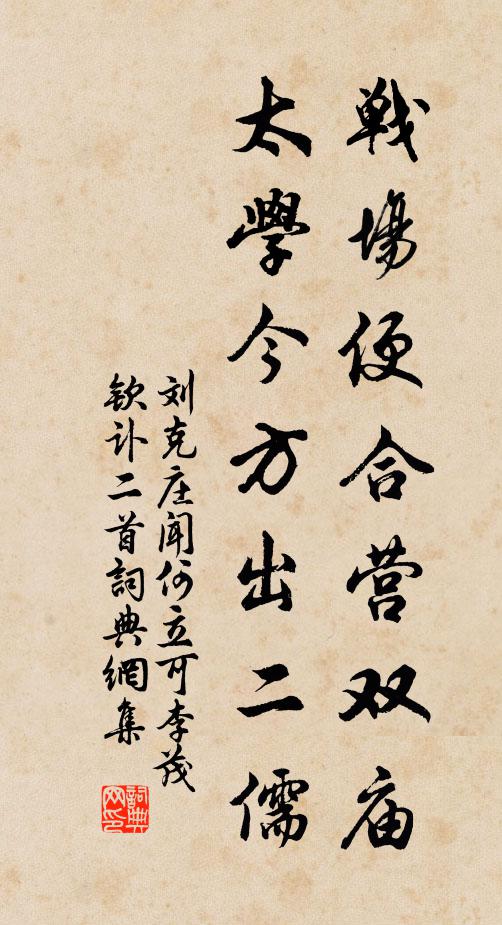 戦場便合营双庙
太學今方出二儒
刘克庄闻何立可李茂
钦讣二首詞典網集
詞典
网印